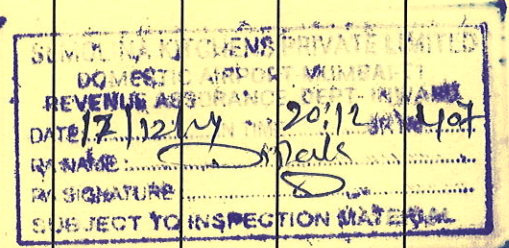 PRIVATE LIMITED
DOMESTIC AIRPORT MUMBAI
REVENUE ASSURANCE DEPT. INWARD
DATE 17/12/14 IN TIME 20:12 SR NO 407
RA NAME:
RA SIGNATURE
SUBJECT TO INSPECTION MATERIAL